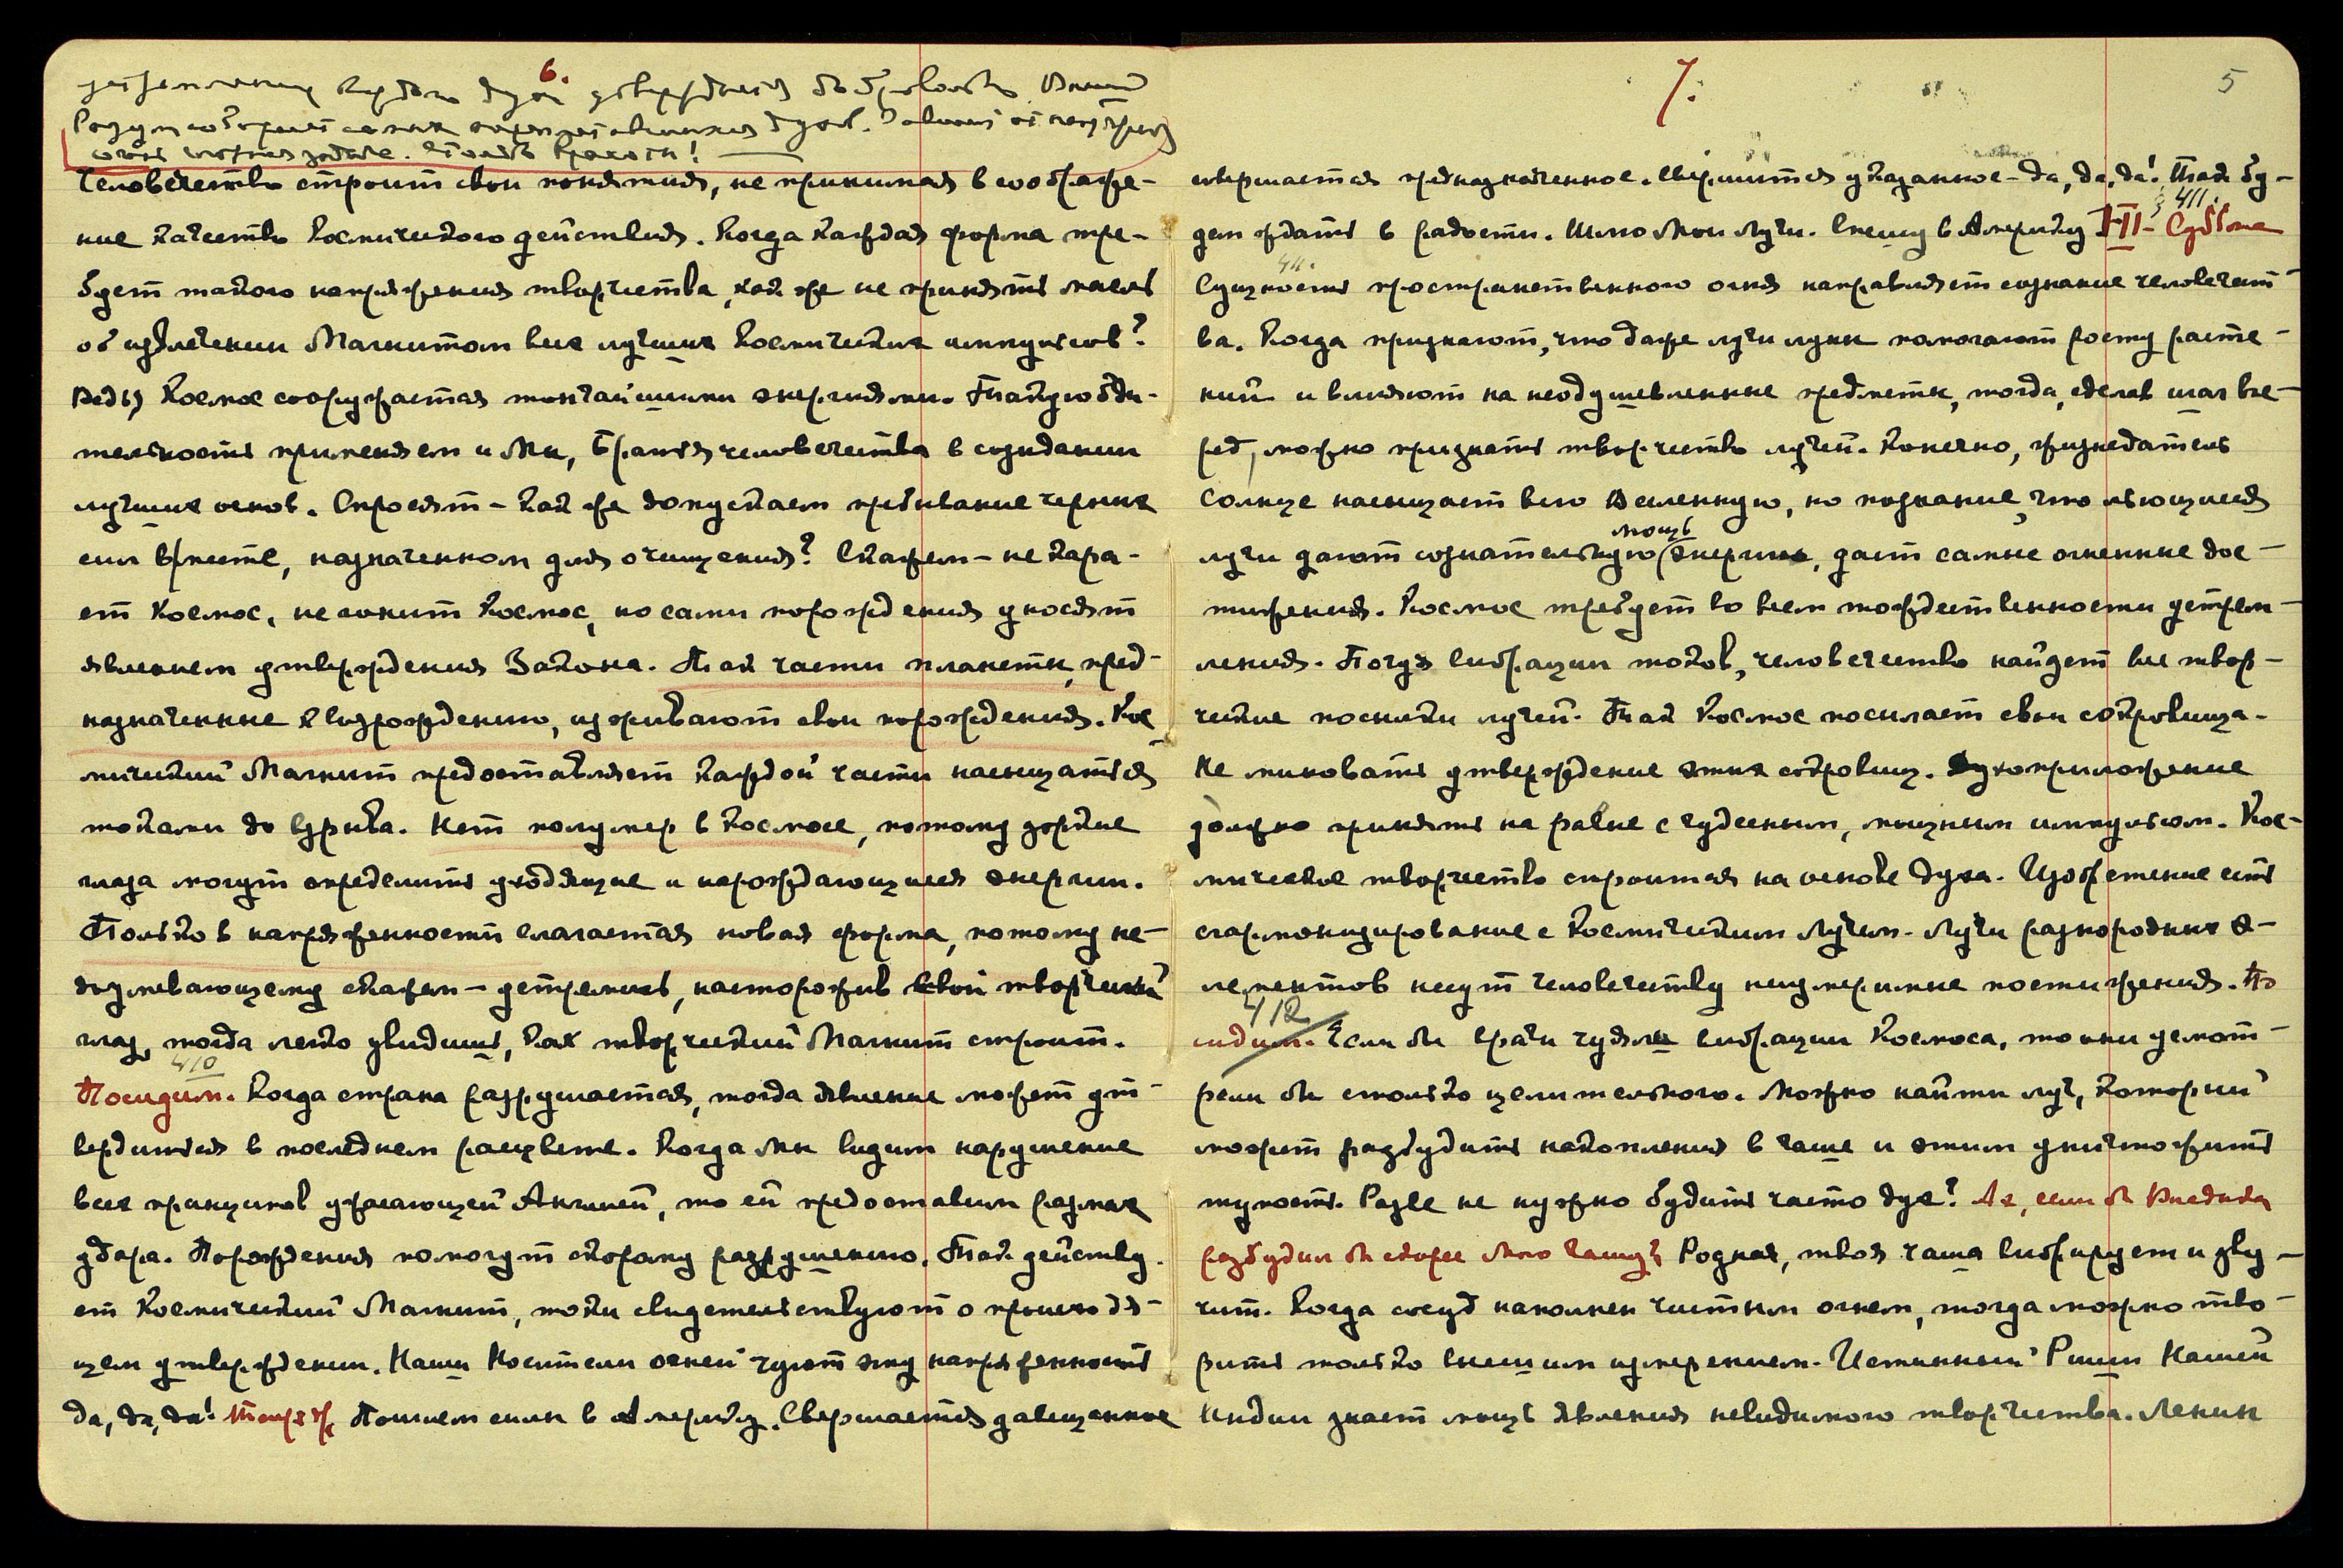 6.
утверждается
Разум собирает самых духов.
Человечество строит свои понятия, не принимая в соображе-
ние качество Космического действия. Когда каждая форма тре-
бует такого напряжения творчества, как же не принять мысль
об извлечении Магнитом всех лучших Космических импульсов?
Ведь, Космос сооружается тончайшими энергиями. Такую бди-
тельность применяем и Мы, Братья человечества в создании
лучших основ. Спросят – как же допускаем пребывание черных
сил в месте, назначенном для очищения? Скажем – не кара-
ет Космос, не гонит Космос, но сами порождения уносят
явлением утверждения Закона. Так части планеты, пред-
назначенные к возрождению, изживают свои порождения. Кос-
мический Магнит предоставляет каждой части насыщаться
токами до взрыва. Нет полумер в Космосе, потому зоркие
глаза могут определить уходящие и нарождающиеся энергии.
Только в напряженности слагается новая форма, потому не-
доумевающему скажем – устремись, насторожив свой творческий
глаз, тогда легко увидишь, как творческий Магнит строит.
410
Последим. Когда страна разрушается, тогда явление может ут-
вердиться в последнем расцвете. Когда Мы видим нарушение
всех принципов ужасающей Англией, то ей предоставим размах
удара. Порождения помогут скорому разрушению. Так действу-
ет Космический Магнит, токи свидетельствуют о происходя-
щем утверждении. Наши Носители огней чуют эту напряженность
да, да, да! Пошлем силы в Америку. Свершается завещанное
7.
5
свершается предназначенное. Свершится указанное – да, да, да! Так бу-
411.
дем ждать в радости. Шлю Мои лучи. Спешу в Америку III – Суббота
411.
Сущность пространственного огня направляет сознание человечест-
ва. Когда признают, что даже лучи луны помогают росту расте-
ний и влияют на неодушевленные предметы, тогда, сделав шаг впе-
ред, можно признать творчество лучей. Конечно, жизнедатель
Солнце насыщает всю Вселенную, но познание, что льющиеся
мощь
лучи дают сознательную энергию, даст самые огненные дос-
тижения. Космос требует во всем тождественности устрем-
ления. Почуя вибрации токов, человечество найдет все твор-
ческие посылки лучей. Так Космос посылает свои сокровища.
Не миновать утверждение этих сокровищ. Духоприложение
должно принять на равне с чудесным, мощным импульсом. Кос-
мическое творчество строится на основе Духа. Изобретение есть
сгармонизирование с Космическим Лучом. Лучи разнородных э-
лементов несут человечеству неизмеримые постижения. По
412
сидим. Если бы врачи чуяли вибрации Космоса, то они усмот-
рели бы столько целительного. Можно найти луч, который
может разбудить накопления в чаше и этим уничтожить
тупость. Разве не нужно будить часто дух? Ах, если бы Владыка
разбудил бы скорее мою чашу! Родная, твоя чаша вибрирует и зву-
чит. Когда сосуд наполнен чистым огнем, тогда можно тво-
рить только высшим измерением. Истинный Риши Нашей
Индии знает мощь явления невидимого творчества. Ленин